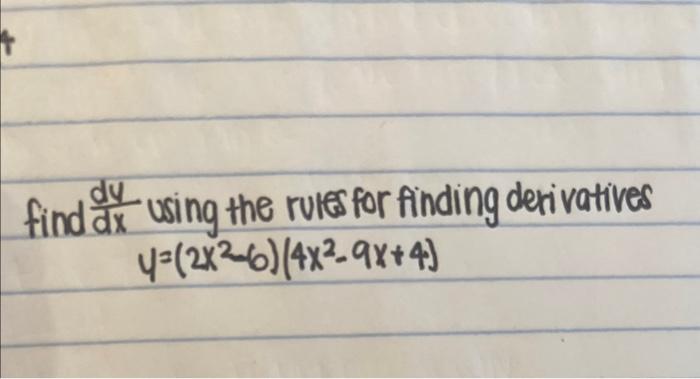 find dy/dx using the rules for finding derivatives
y=(2x²-6)(4x²-9x+4)